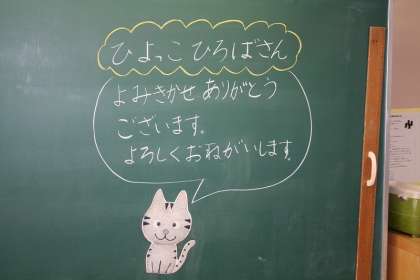 ひよっこひろばさん
よみきかせありがとう
ございます。
よろしくおねがいします。